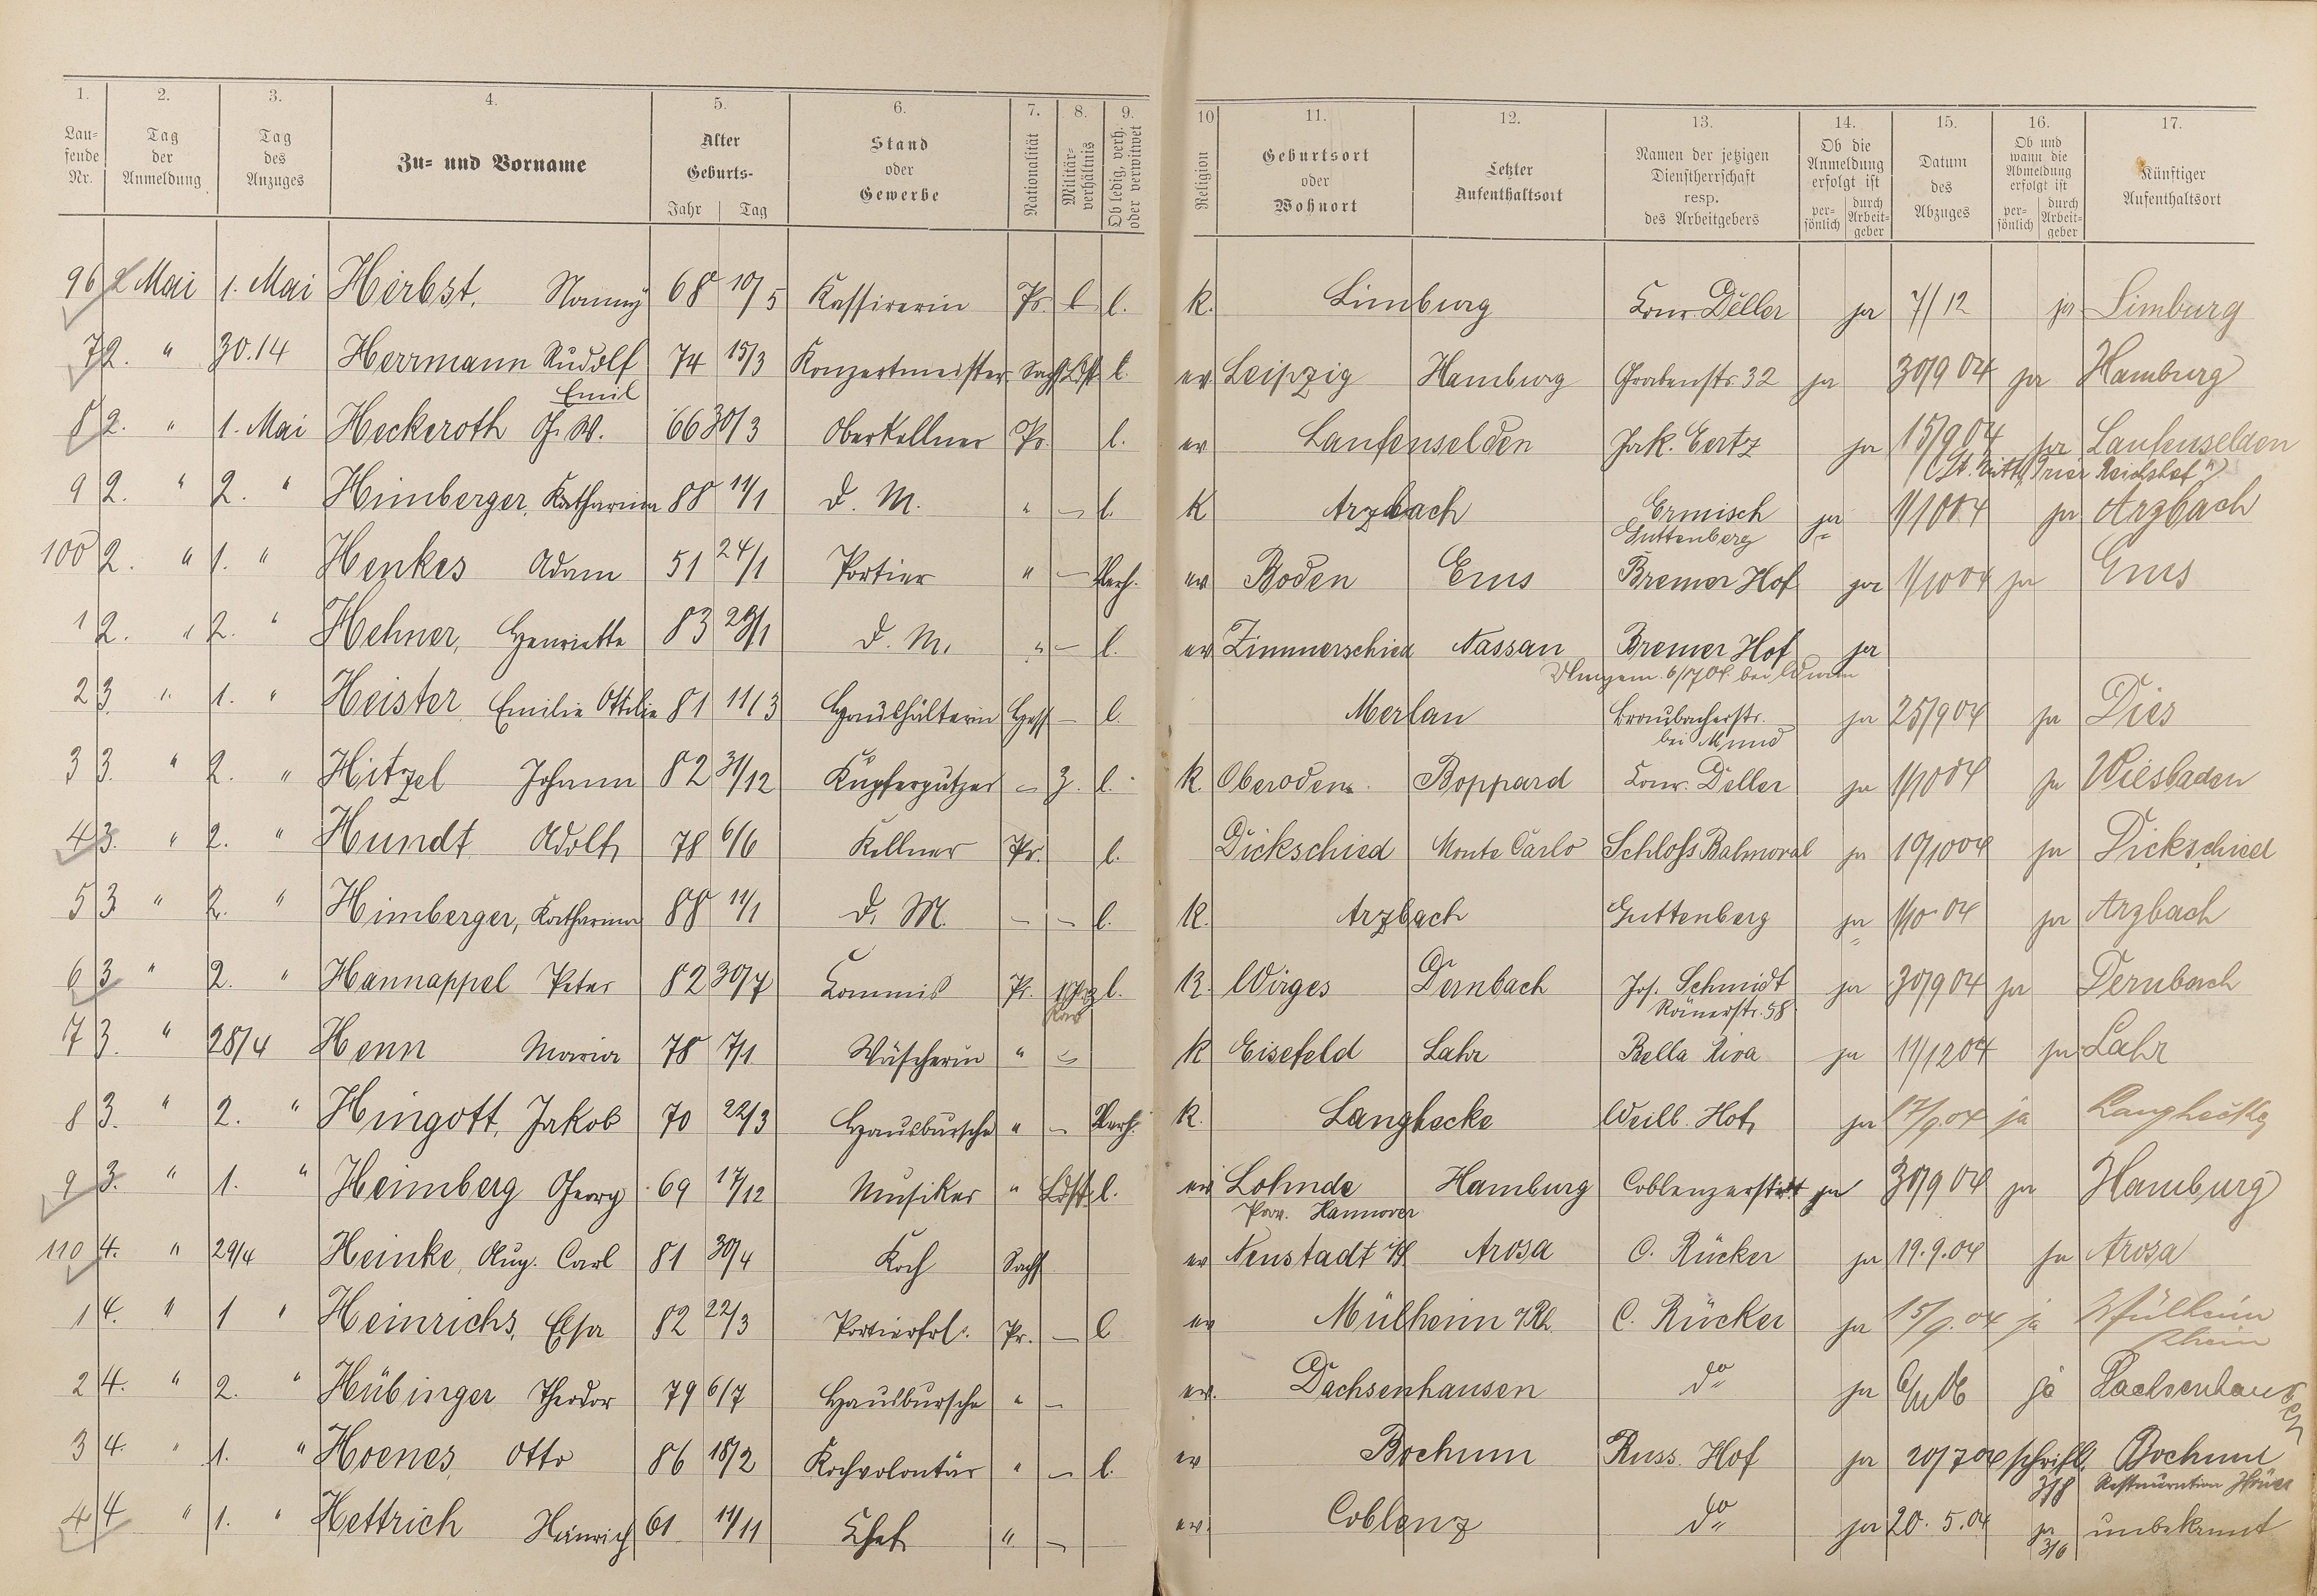 1. 2. 3. 4. 5. 6. 7. 8. 9. 10 11. 12. 13. 14. 15. 16. 17.
Laufende Nr.
Tag der Anmeldung
Tag des Anzuges
Zu- und Vorname
Alter Geburts- Jahr Tag
Stand oder Gewerbe
Nationalität
Militärverhältnis
Ob ledig, verh. oder verwitwet
Religion
Geburtsort oder Wohnort
Letzter Aufenthaltsort
Namen der jetzigen Dienstherrschaft resp. des Arbeitgebers
Ob die Anmeldung erfolgt ist persönlich durch Arbeitgeber
Datum des Abzuges
Ob und wann die Abmeldung erfolgt ist persönlich durch Arbeitgeber
Künftiger Aufenthaltsort
96 2 Mai 1. Mai Herbst, Nanny 68 10/5 Kassirerin Pr. l l. k. Limburg Conr. Deller ja 7/12 ja Limburg
7 2. " 30.14 Herrmann Rudolf Emil 74 15/3 Konzertmeister Sachs Ldst l. ev Leipzig Hamburg Grabenstr. 32 ja 30/9 04 ja Hamburg
8 2. " 1. Mai Heckeroth G. W. 66 30/3 Oberkellner Pr. l. ev Laufenselden Jak. Eertz ja 15/9 04 ja Laufenselden
9 2. " 2. " Himberger, Katharina 88 11/1 D. M. " – l. K Arzbach Ermisch Guttenberg ja 1/10 04 ja Arzbach
100 2. " 1. " Henkes Adam 51 24/1 Portier " – Verh. ev Boden Ems Bremer Hof ja 1/10 04 ja Ems
1 2. " 2. " Hehner, Henriette 83 28/1 D. M. " – l. ev Zimmerschied Nassau Bremer Hof ja
2 3. " 1. " Heister Emilie Ottilie 81 11/3 Haushälterin Hess – l. Merlau Braubacherstr. bei Mund ja 25/9 04 ja Diez
3 3. " 2. " Hitzel Johann 82 31/12 Kupferputzer – 3. l. k. Oberoden Boppard Conr. Deller ja 1/10 04 ja Wiesbaden
4 3. " 2. " Hundt Adolf 78 6/6 Kellner Pr. l. Dickschied Monte Carlo Schloß Balmoral ja 10/10 04 ja Dickschied
5 3 " 2. " Himberger, Katharina 88 11/1 D. M. – – l. K. Arzbach Guttenberg ja 1/10 04 ja Arzbach
6 3 " 2. " Hannappel Peter 82 30/7 Commis Pr. l. K. Wirges Dernbach Jos. Schmidt Römerstr. 58 ja 30/9 04 ja Dernbach
7 3. " 28/4 Henn Maria 78 7/1 Wäscherin " – K Eisefeld Lahr Bella Riva ja 11/12 04 ja Lahr
8 3. " 2. " Hingott, Jakob 70 22/3 Hausbursche " – Verh. K. Langhecke Weilb. Hof ja 17/9.04 ja Langhecke
9 3. " 1. " Heimberg Georg 69 17/12 Musiker " Ldst l. ev Lohnde Prov. Hannover Hamburg Coblenzerstr. ja 30/9 04 ja Hamburg
110 4. " 29/4 Heinke, Aug. Carl 81 30/4 Koch Sachs ev Neustadt Arosa C. Rücker ja 19.9.04 ja Arosa
1 4. " 1 " Heinrichs, Elsa 82 22/3 Portierfrl. Pr. – l ev Mülheim a/Rh. C. Rücker ja 15/9.04 ja Mülheim Rhein
2 4. " 2. " Hübinger Theodor 79 6/7 Hausbursche " – ev. Dachsenhausen do ja ja Dachsenhausen
3 4. " 1. " Hoenes Otto 86 18/2 Kochvolontär " – l. ev Bochum Russ. Hof ja 20/7 04 schriftl. Bochum Restauration
4 4 " 1. " Hettrich Heinrich 61 11/11 Chef " – ev. Coblenz do ja 20. 5. 04 ja 3/6 unbekannt